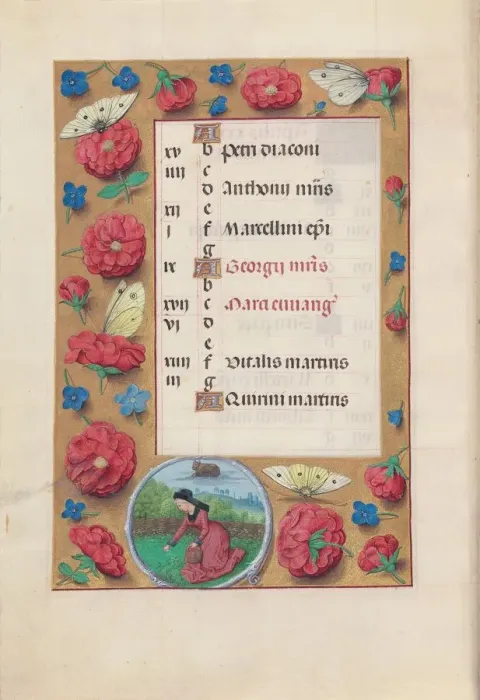 A
xv b Petri diaconi
iiij c
d Anthonij mris
xij e
j f Marcellini epi
g
ix A Georgij mris
b
xvij c Marci euuang
vj d
e
xiiij f Vitalis martiris
iij g
A Quirini martiris